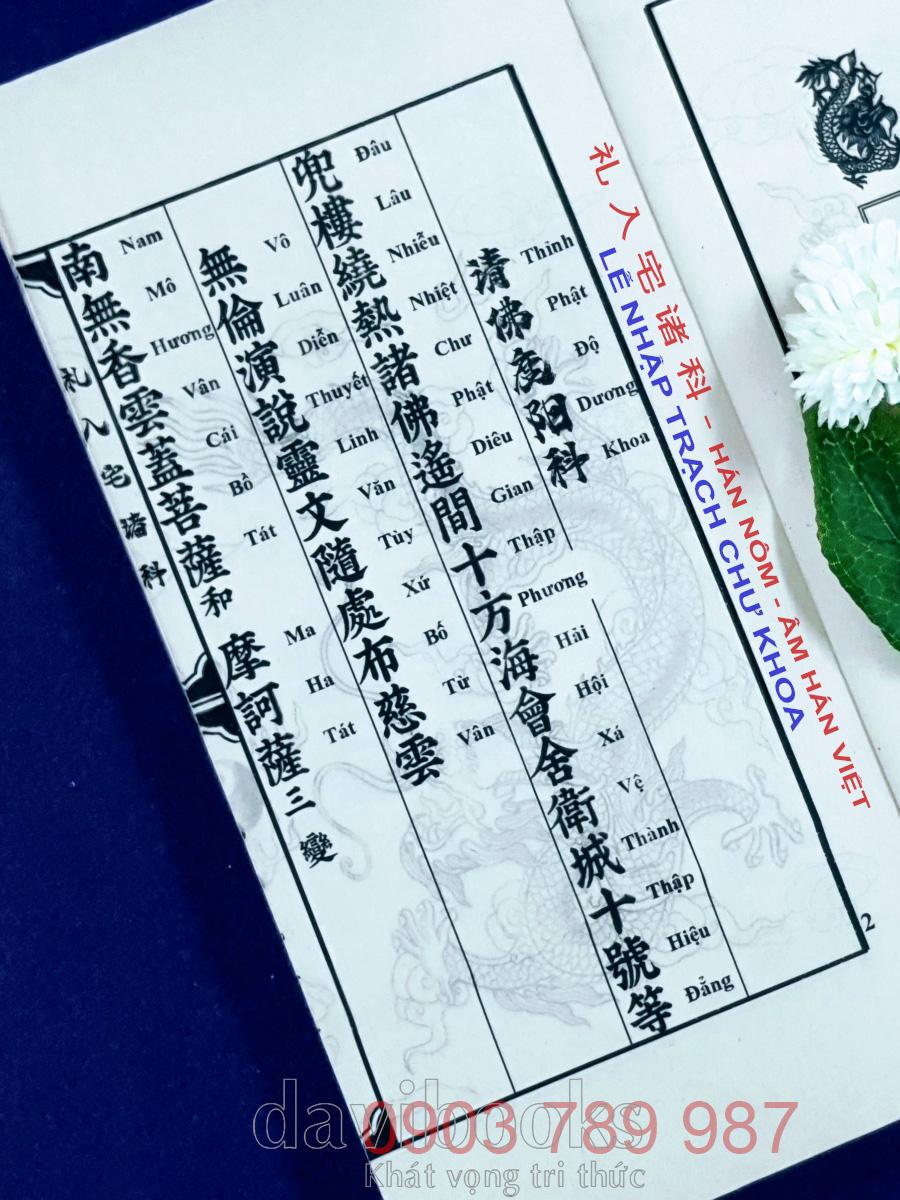 清佛度阳科
Thỉnh Phật Độ Dương Khoa
兜樓繞熱諸佛遙間十方海會舍衛城十號等
Đâu Lâu Nhiễu Nhiệt Chư Phật Diêu Gian Thập Phương Hải Hội Xá Vệ Thành Thập Hiệu Đẳng
無倫演說靈文隨處布慈雲
Vô Luân Diễn Thuyết Linh Văn Tùy Xứ Bố Từ Vân
南無香雲蓋菩薩和摩訶薩三變
Nam Mô Hương Vân Cái Bồ Tát Ma Ha Tát
礼入宅诸科
2
礼入宅诸科 - HÁN NÔM - ÂM HÁN VIỆT
LỄ NHẬP TRẠCH CHƯ KHOA
davibooks
0903 789 987
Khát vọng tri thức